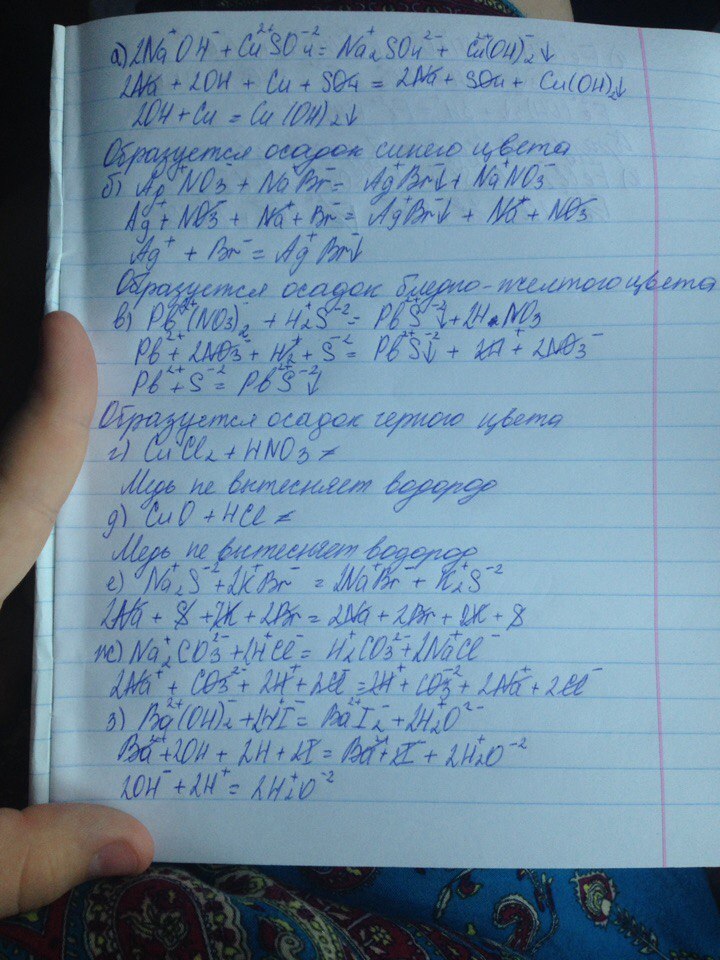 а) 2Na⁺OH⁻ + Cu²⁺SO₄⁻² = Na₂⁺SO₄²⁻ + Cu²⁺(OH)₂⁻↓
2Na + 2OH + Cu + SO₄ = 2Na + SO₄ + Cu(OH)₂↓
2OH + Cu = Cu(OH)₂↓
Образуется осадок синего цвета
б) Ag⁺NO₃⁻ + NaBr⁻ = Ag⁺Br⁻↓ + Na⁺NO₃⁻
Ag⁺ + NO₃⁻ + Na⁺ + Br⁻ = Ag⁺Br⁻↓ + Na⁺ + NO₃
Ag⁺ + Br⁻ = Ag⁺Br⁻↓
Образуется осадок бледно-желтого цвета
в) Pb²⁺(NO₃)₂⁻ + H₂⁺S⁻² = Pb²⁺S⁻²↓ + 2HNO₃
Pb²⁺ + 2NO₃⁻ + H₂⁺ + S⁻² = Pb²⁺S⁻²↓ + 2H⁺ + 2NO₃⁻
Pb²⁺ + S⁻² = Pb²⁺S⁻²↓
Образуется осадок черного цвета
г) CuCl₂ + HNO₃ ≠
Медь не вытесняет водород
д) CuO + HCl ≠
Медь не вытесняет водород
е) Na₂⁺S⁻² + 2K⁺Br⁻ = 2Na⁺Br⁻ + K₂⁺S⁻²
2Na + S + 2K + 2Br = 2Na + 2Br + 2K + S
ж) Na₂⁺CO₃²⁻ + 2H⁺Cl⁻ = H₂⁺CO₃²⁻ + 2Na⁺Cl⁻
2Na⁺ + CO₃²⁻ + 2H⁺ + 2Cl⁻ = 2H⁺ + CO₃⁻² + 2Na⁺ + 2Cl⁻
з) Ba²⁺(OH)₂⁻ + 2H⁺I⁻ = Ba²⁺I₂⁻ + 2H₂O²⁻
Ba²⁺ + 2OH + 2H + 2I = Ba²⁺ + 2I⁻ + 2H₂⁺O⁻²
2OH⁻ + 2H⁺ = 2H₂⁺O⁻²